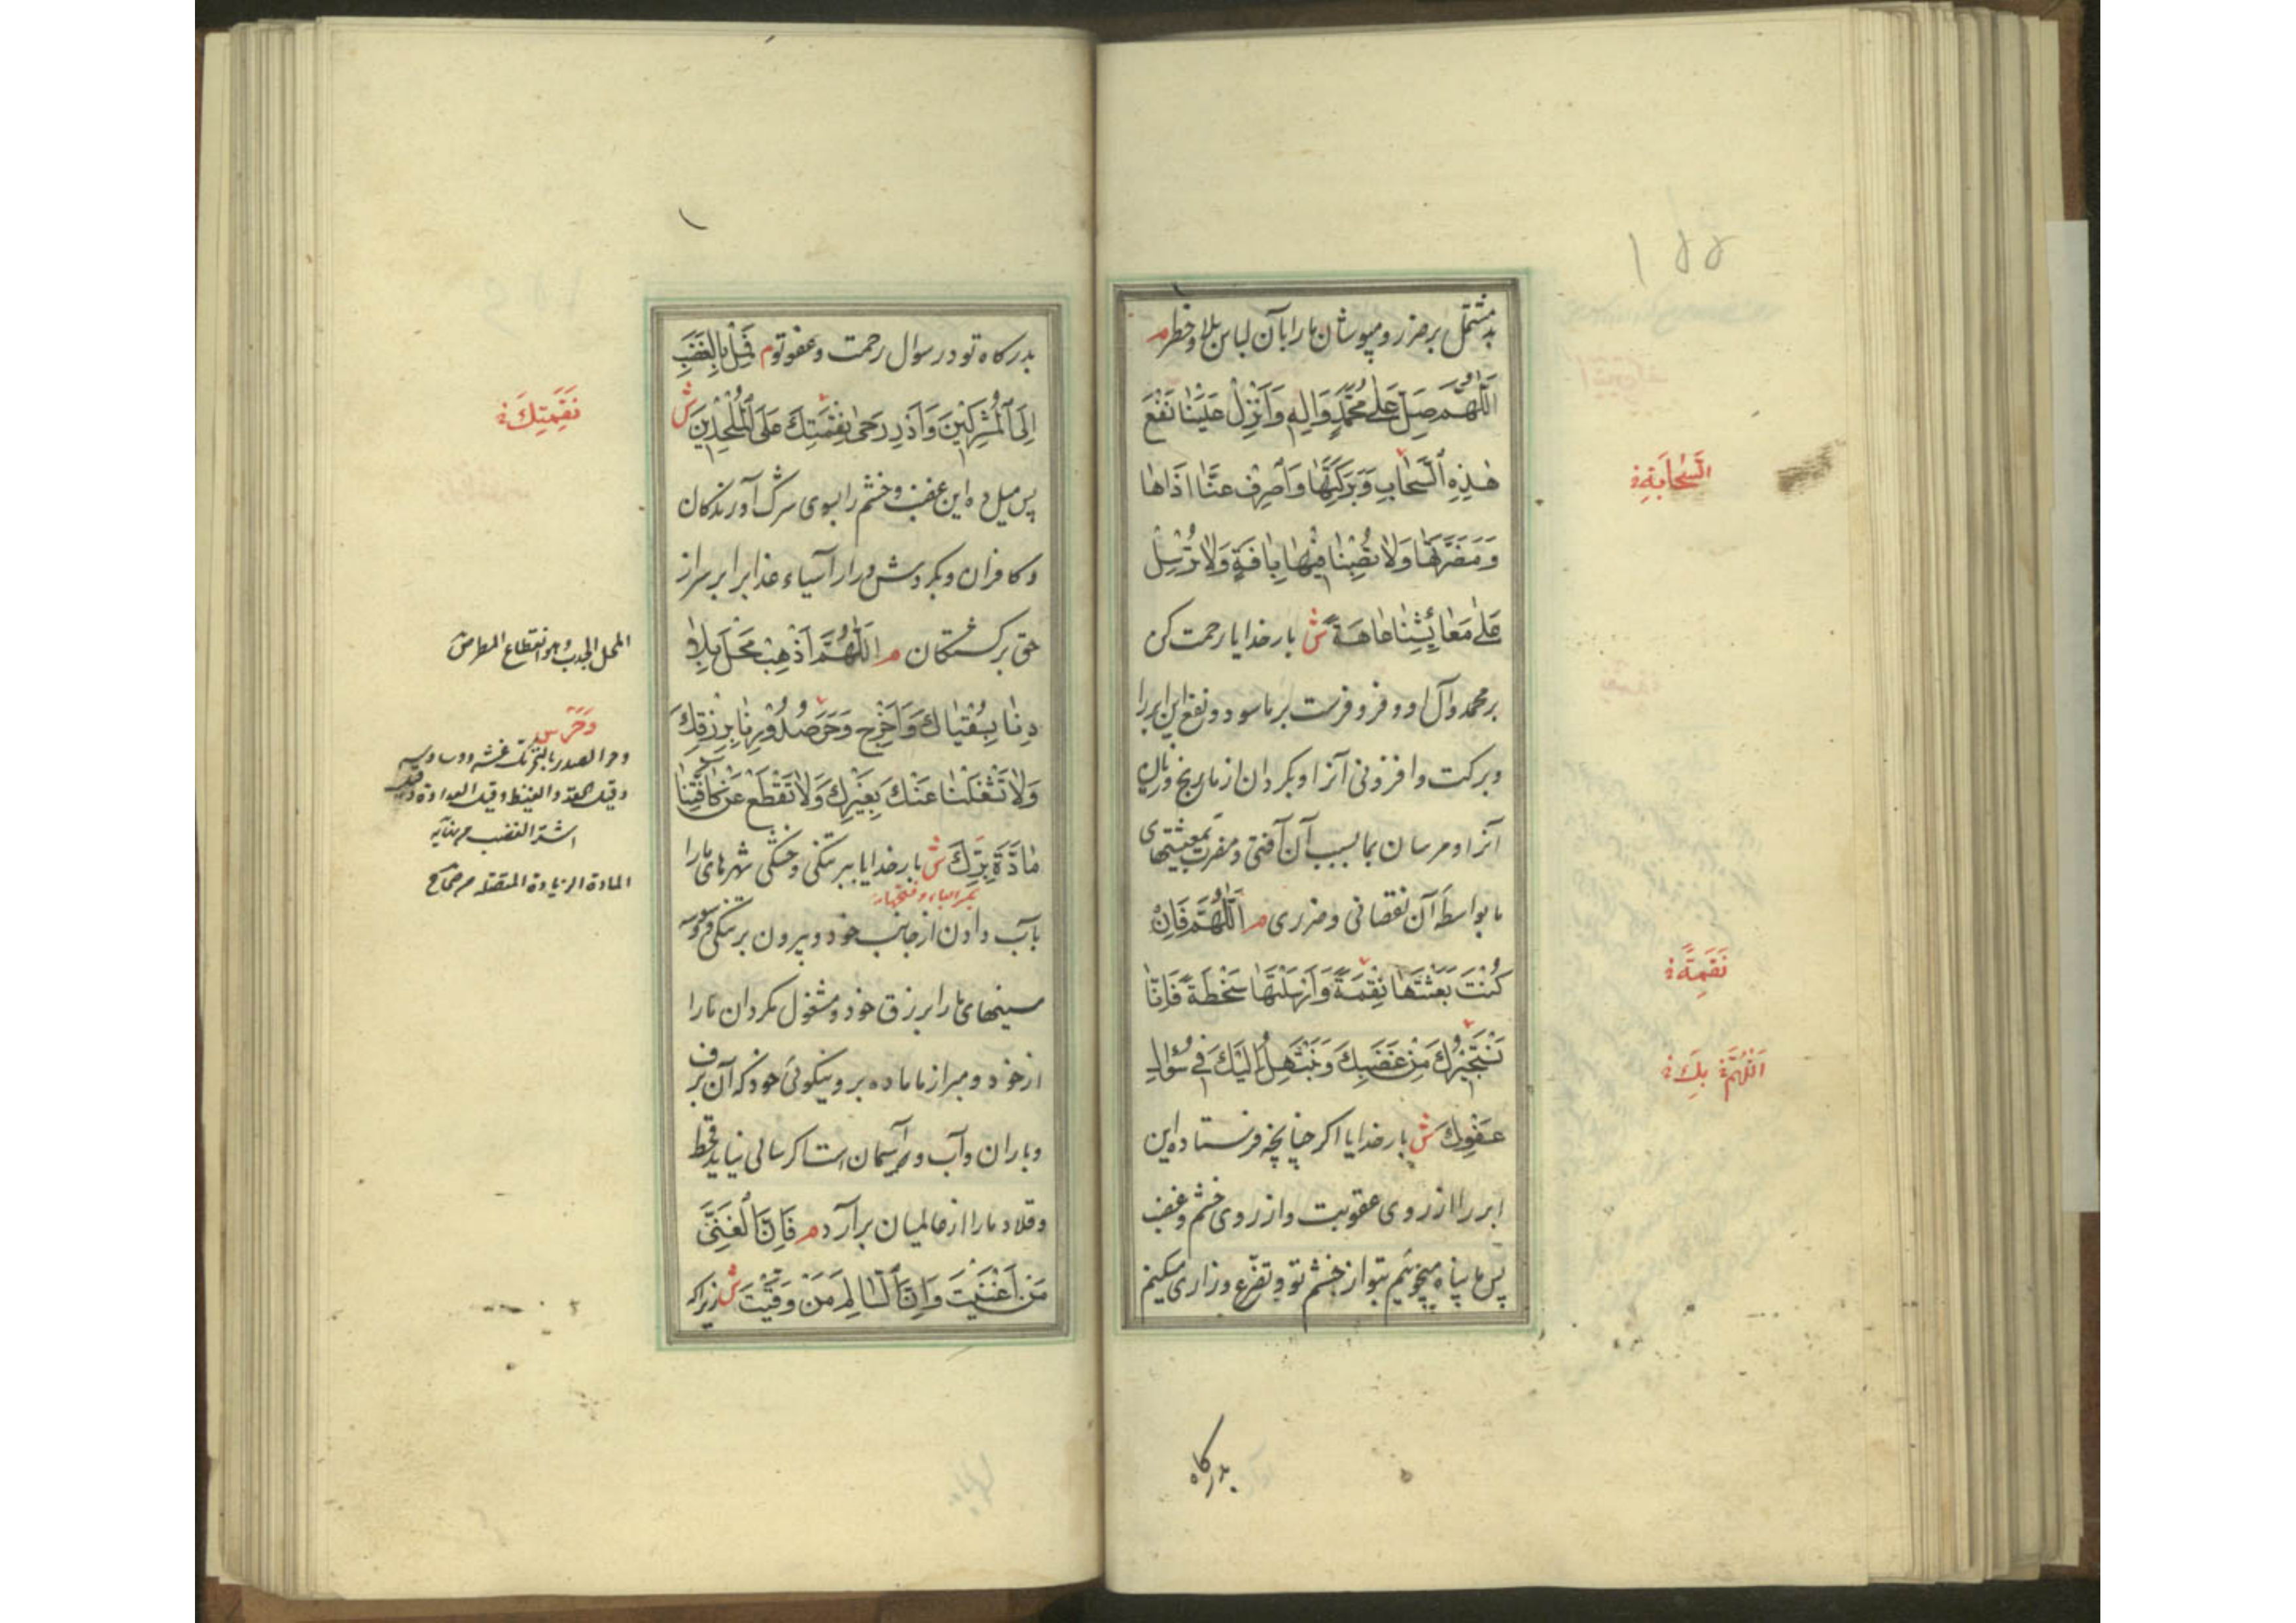 ۱۵۵
بد مشتمل بر ضرر و مپوشان ما را بآن لباس بلا و خطر م
اَللّٰهُمَّ صَلِّ عَلٰى مُحَمَّدٍ وَاٰلِهِ وَاَنْزِلْ عَلَيْنٰا نَفْعَ
هٰذِهِ ٱلسَّحٰابِ وَبَرَكَتَهٰا وَٱصْرِفْ عَنَّا اَذَاهٰا
وَمَضَرَّتَهٰا وَلاٰ تُصِبْنٰا فِيْهٰا بِاٰفَةٍ وَلاٰ تُرْسِلْ
عَلٰى مَعٰائِشِنٰا عٰاهَةً ش بار خدایا رحمت کن
بر محمد و آل او و فرو فرست بر ما سود و نفع این ابر را
و برکت و افزونی آنرا و بکردان از ما رنج و زیان
آنرا و مرسان بما بسبب آن آفتی و مفرست بمعیشتهای
ما بواسطه آن نقصانی و ضرری م اَللّٰهُمَّ فَاِنْ
كُنْتَ بَعَثْتَهٰا نِقْمَةً وَاَرْسَلْتَهٰا سَخْطَةً فَاِنّٰا
نَسْتَجِيْرُكَ مِنْ غَضَبِكَ وَنَبْتَهِلُ اِلَيْكَ فِي سُؤٰالِ
عَفْوِكَ ش بار خدایا اکر چنانچه فرستاده این
ابر را از روی عقوبت و از روی خشم و غضب
پس ما پناه میجوئیم بتو از خشم تو و تضرع و زاری میکنیم
بدرکاه
السَّحٰابَةِ
نَقِمَةً
اَللّٰهُمَّ بِكَ
بدرکاه تو در سوال رحمت و عفو تو م فَمِلْ بِالْغَضَبِ
اِلَى ٱلْمُشْرِكِيْنَ وَاَدْرِ رَحٰى نِقْمَتِكَ عَلَى ٱلْمُلْحِدِيْنَ ش
پس میل ده این غضب و خشم را بسوی شرک آورندکان
و کافران و بکردش در آر آسیاء عذاب را بر سر از
حق برکشتکان م اَللّٰهُمَّ اَذْهِبْ مَحْلَ بِلاٰ
دِنٰا بِسُقْيٰاكَ وَاَخْرِجْ وَحَرَ صُدُوْرِنٰا بِرِزْقِكَ
وَلاٰ تَشْغَلْنٰا عَنْكَ بِغَيْرِكَ وَلاٰ تَقْطَعْ عَنْ كٰافَّتِنٰا
مٰادَّةَ بِرِّكَ ش بار خدایا ببر تنکی و خشکی شهرهای ما را
بآب دادن از جانب خود و بیرون بر تنکی و وسوسه
سینهای ما را برزق خود و مشغول مکردان ما را
از خود و مبر از ما ماده بر و نیکوئی خود که آن برف
و باران و آب و نم آسمان است اکر سالی نیاید قحط
و غلا دمار از عالمیان برآرد م فَاِنَّ ٱلْغَنِيَّ
مَنْ اَغْنَيْتَ وَاِنَّ ٱلسّٰالِمَ مَنْ وَقَيْتَ ش زیرا که
نَقِمَتِكَ
المحل الجدب و هو انقطاع المطر ص
وَحَرَ س
وحر الصدر بالتحریک غشه و وساوسه
وقیل الحقد و الغیظ وقیل العداوة وقیل
اشد الغضب
المادة الزیادة المتصلة